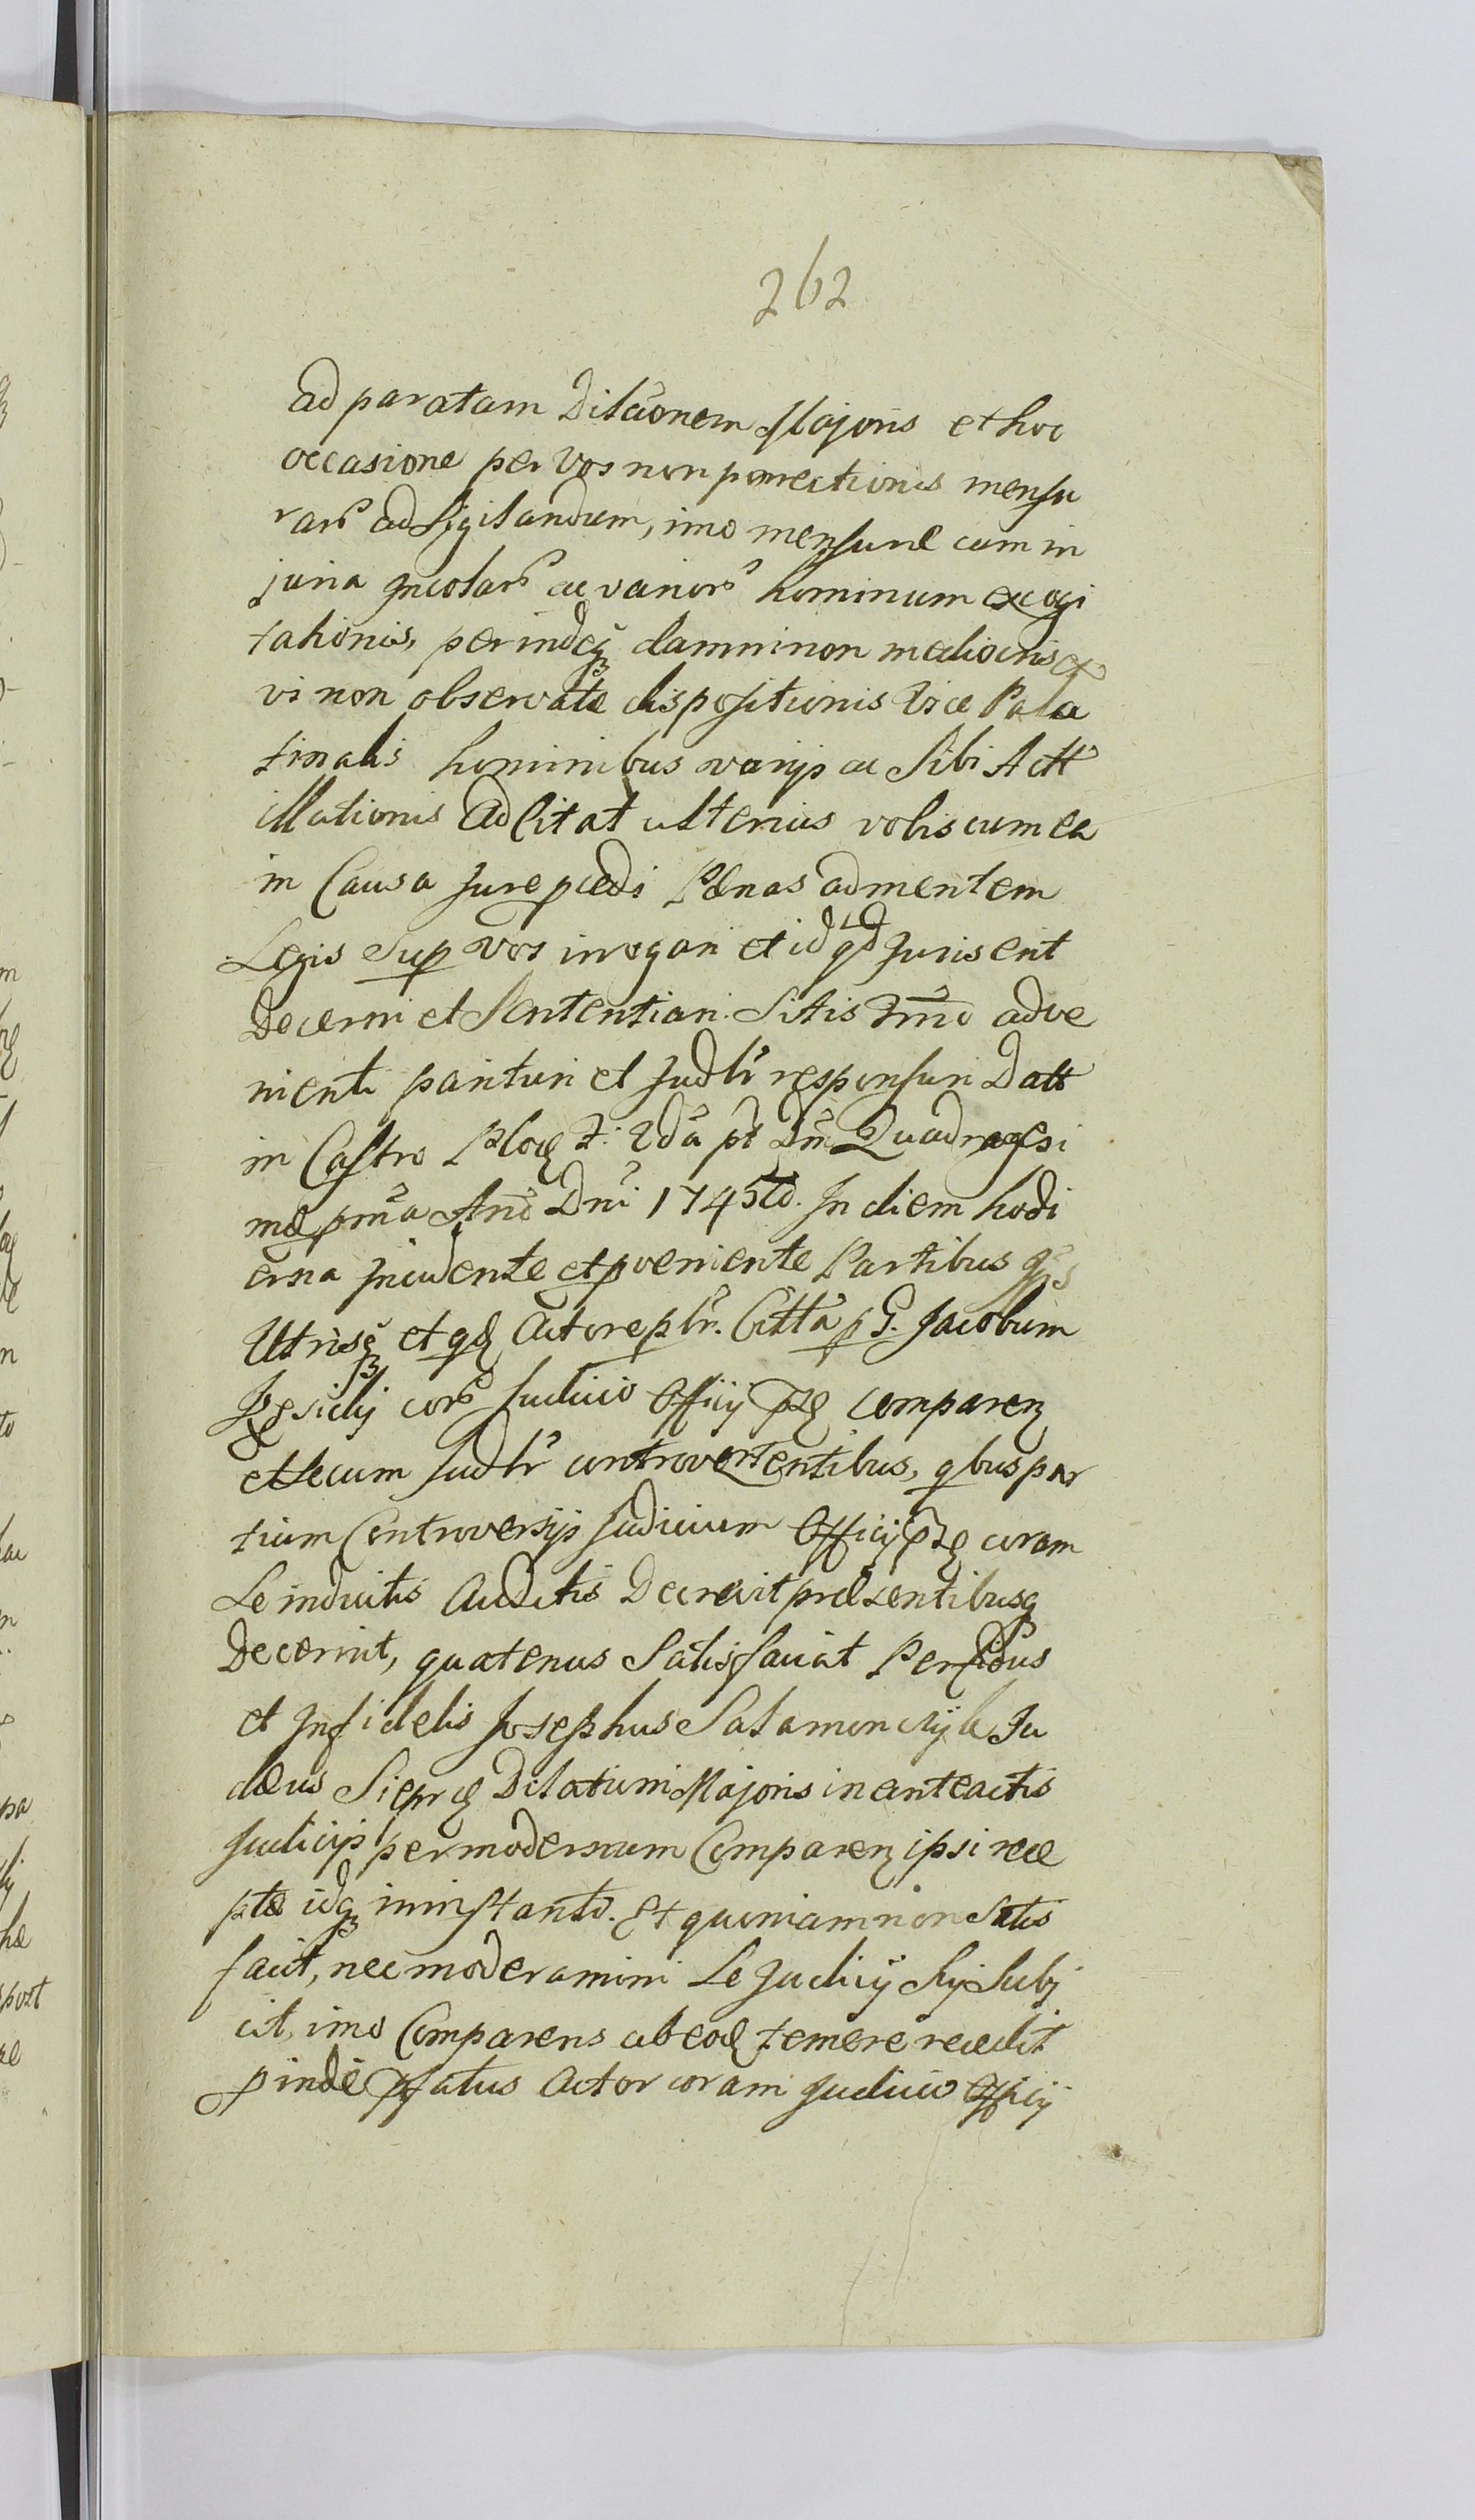 262
ad paratam Dilãonem Majoris et hoc
occasione per Vos non porrectionis mensu
rarũ ad Sigilandum, imo mensuræ cum in
juria Incolarũ ac variorũ hominum excogi
tationis, perindeq damni non mediocris ex
vi non observatæ dispositionis Vice Pala
tinalis hominibus varijs ac Sibi Actt
illationis ad Citat ulterius vobiscum ea
in Causa Jure pcedi Pænas ad mentem
Legis Sup vos irrogari et id qd Juris erit
Decerni et Sententiari. Sitis Tmno adve
nienti parituri et Judlr responsuri Datt
in Castro Ploc f. 2da pt Dni Quadragesi
mæ pma Ano Dni 1745to. In diem hodi
erna Incidente et pveniente Partibus
Utrisq et qd Actore plr. Citta p G. Jacobum
corũ Judicio Officij comparen
et Secum Judlr controvertentibus, qbus par
tium Controversijs Judicium Officij coram
Se inductis Auditis Decrevit præsentibusq
Decernit, quatenus Satisfaciat Perfidus
et Infidelis Josephus Salamonczyk Ju
dæus Sierpc Dilationi Majoris in anteactis
Judicijs per modernum Comparen ipsi rece
ptæ idq ininstanti. Et quoniam non Satis
facit, nec moderamini Se Judicij Hj Subj
cit, imo Comparens ab eod temere recedit
pinde pfatus Actor coram Judicio Officij